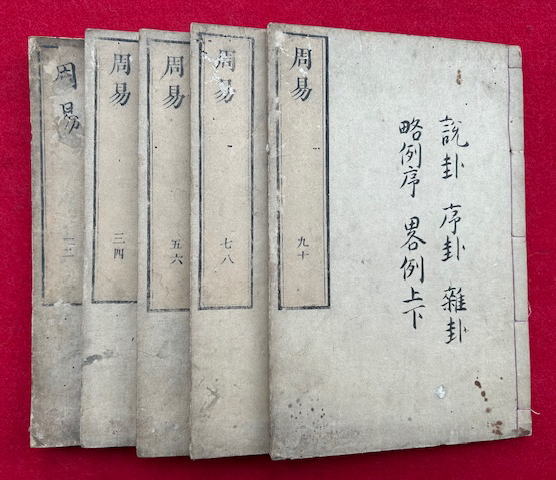 周易
一二
周易
三四
周易
五六
周易
七八
周易
九十
說卦 序卦 雜卦
略例序 畧例上下